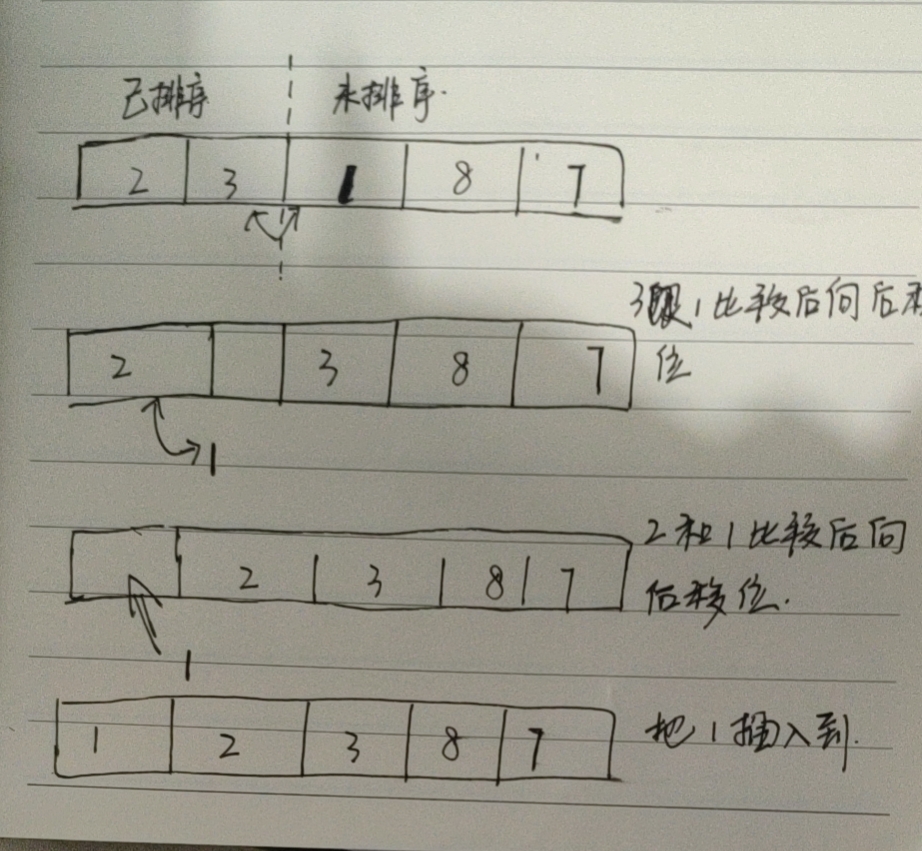 已排序 未排序.
2 3 1 8 7
3跟1比较后向后移
位
2 3 8 7
1
2和1比较后向
后移位.
2 3 8 7
1
1 2 3 8 7
把1插入到.